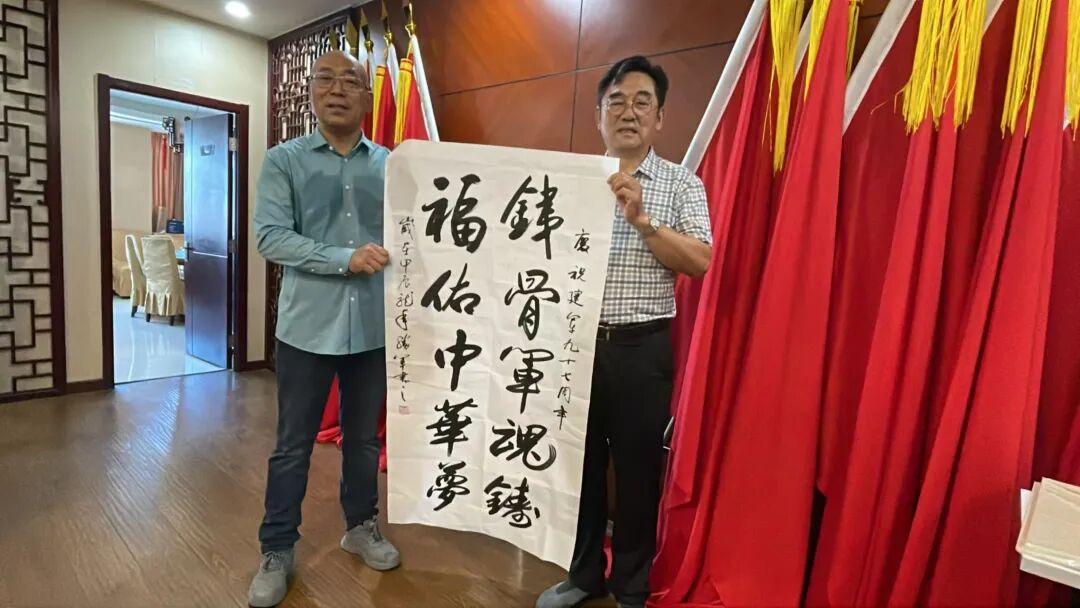 慶祝建军九十七周年
銕骨軍魂鑄
福佑中華夢
歲在甲辰龍年軍書之